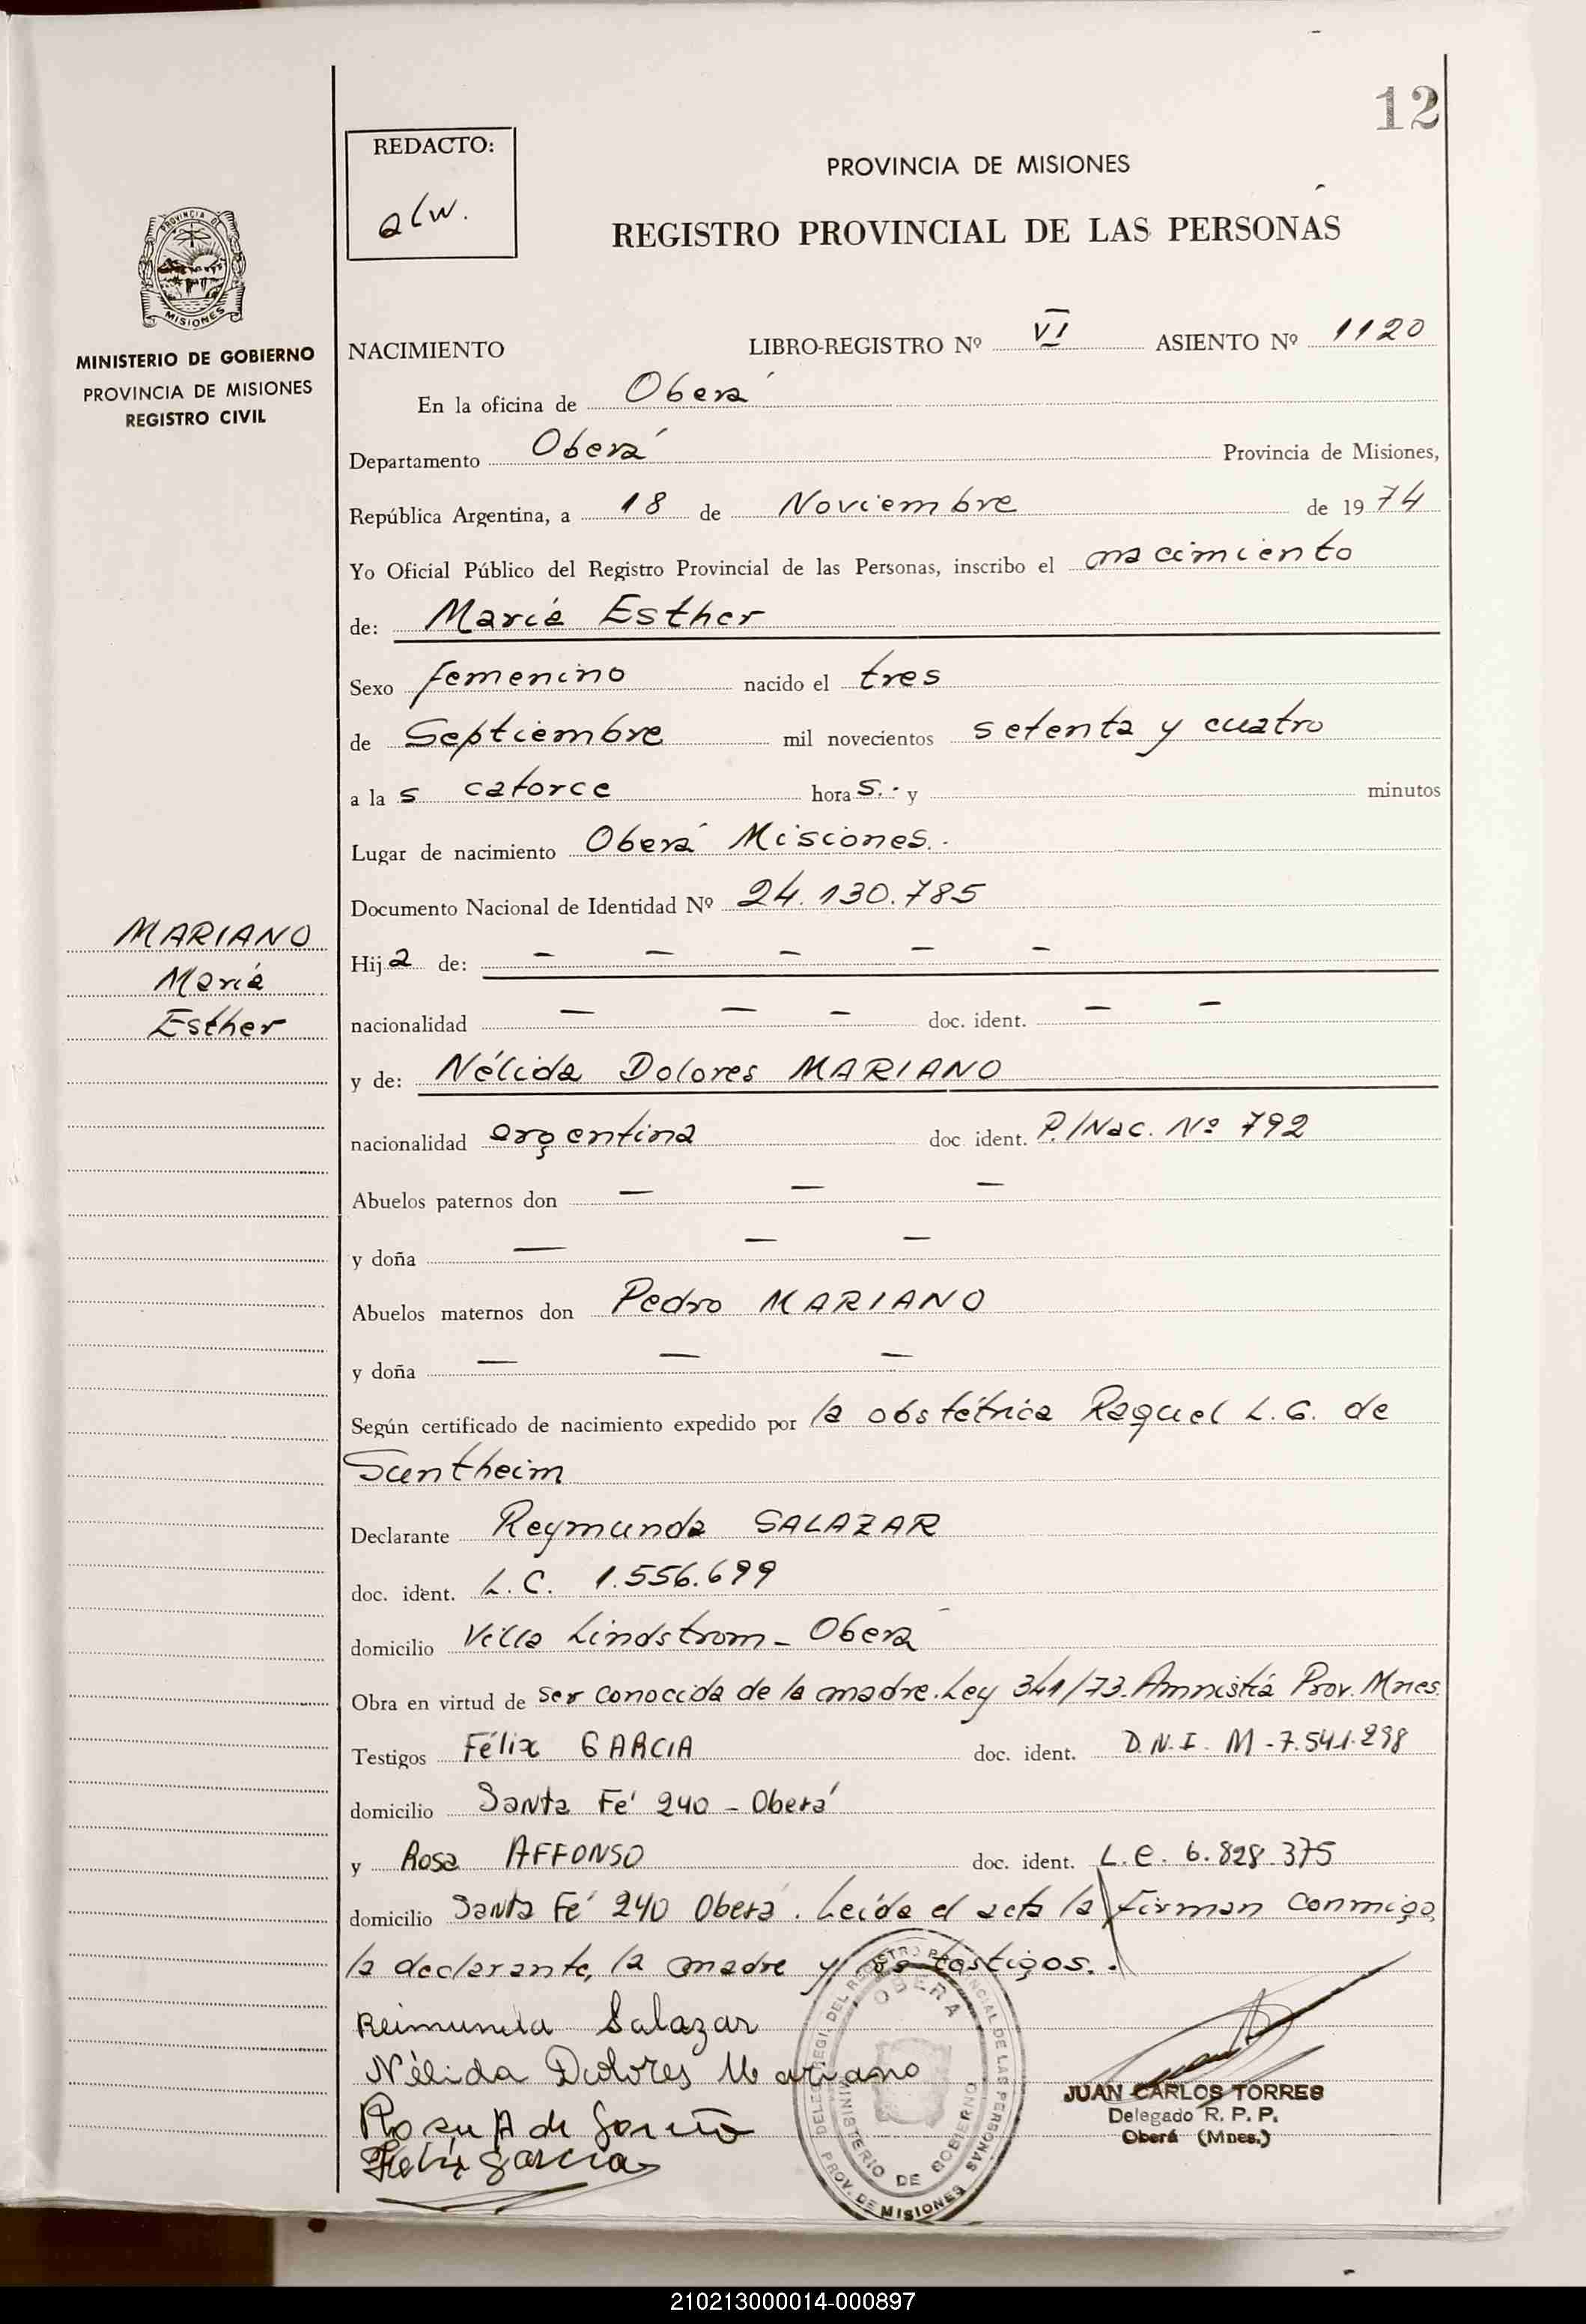 12
REDACTO:
alw.
PROVINCIA DE MISIONES
REGISTRO PROVINCIAL DE LAS PERSONAS
PROVINCIA DE
MISIONES
MINISTERIO DE GOBIERNO
PROVINCIA DE MISIONES
REGISTRO CIVIL
NACIMIENTO LIBRO-REGISTRO Nº VI ASIENTO Nº 1120
En la oficina de Oberá
Departamento Oberá Provincia de Misiones,
República Argentina, a 18 de Noviembre de 1974
Yo Oficial Público del Registro Provincial de las Personas, inscribo el nacimiento
de: María Esther
Sexo femenino nacido el tres
de Septiembre mil novecientos setenta y cuatro
a las catorce horas.- y minutos
Lugar de nacimiento Oberá Misiones.-
Documento Nacional de Identidad Nº 24.130.785
MARIANO
María
Esther
Hija de: — — — — —
nacionalidad — — — doc. ident. — —
y de: Nélida Dolores MARIANO
nacionalidad argentina doc ident. P./Nac. Nº 792
Abuelos paternos don — — —
y doña — — —
Abuelos maternos don Pedro MARIANO
y doña — — —
Según certificado de nacimiento expedido por la obstétrica Raquel L. G. de
Suntheim
Declarante Reymunda SALAZAR
doc. ident. L. C. 1.556.699
domicilio Villa Lindstrom - Oberá
Obra en virtud de ser conocida de la madre. Ley 341/73. Amnistía Prov. Mnes.
Testigos Félix GARCIA doc. ident. D.N.I. M-7.541.298
domicilio Santa Fé 240 - Oberá
y Rosa AFFONSO doc. ident. L.C. 6.828.375
domicilio Santa Fé 240 Oberá. Leída el acta la firman conmigo,
la declarante, la madre y los testigos.-
Reimunda Salazar
Nélida Dolores Mariano
Rosa A de García
Felix Garcia
OBERA
MINISTERIO DE GOBIERNO
PROV. DE MISIONES
JUAN CARLOS TORRES
Delegado R. P. P.
Oberá (Mnes.)
210213000014-000897